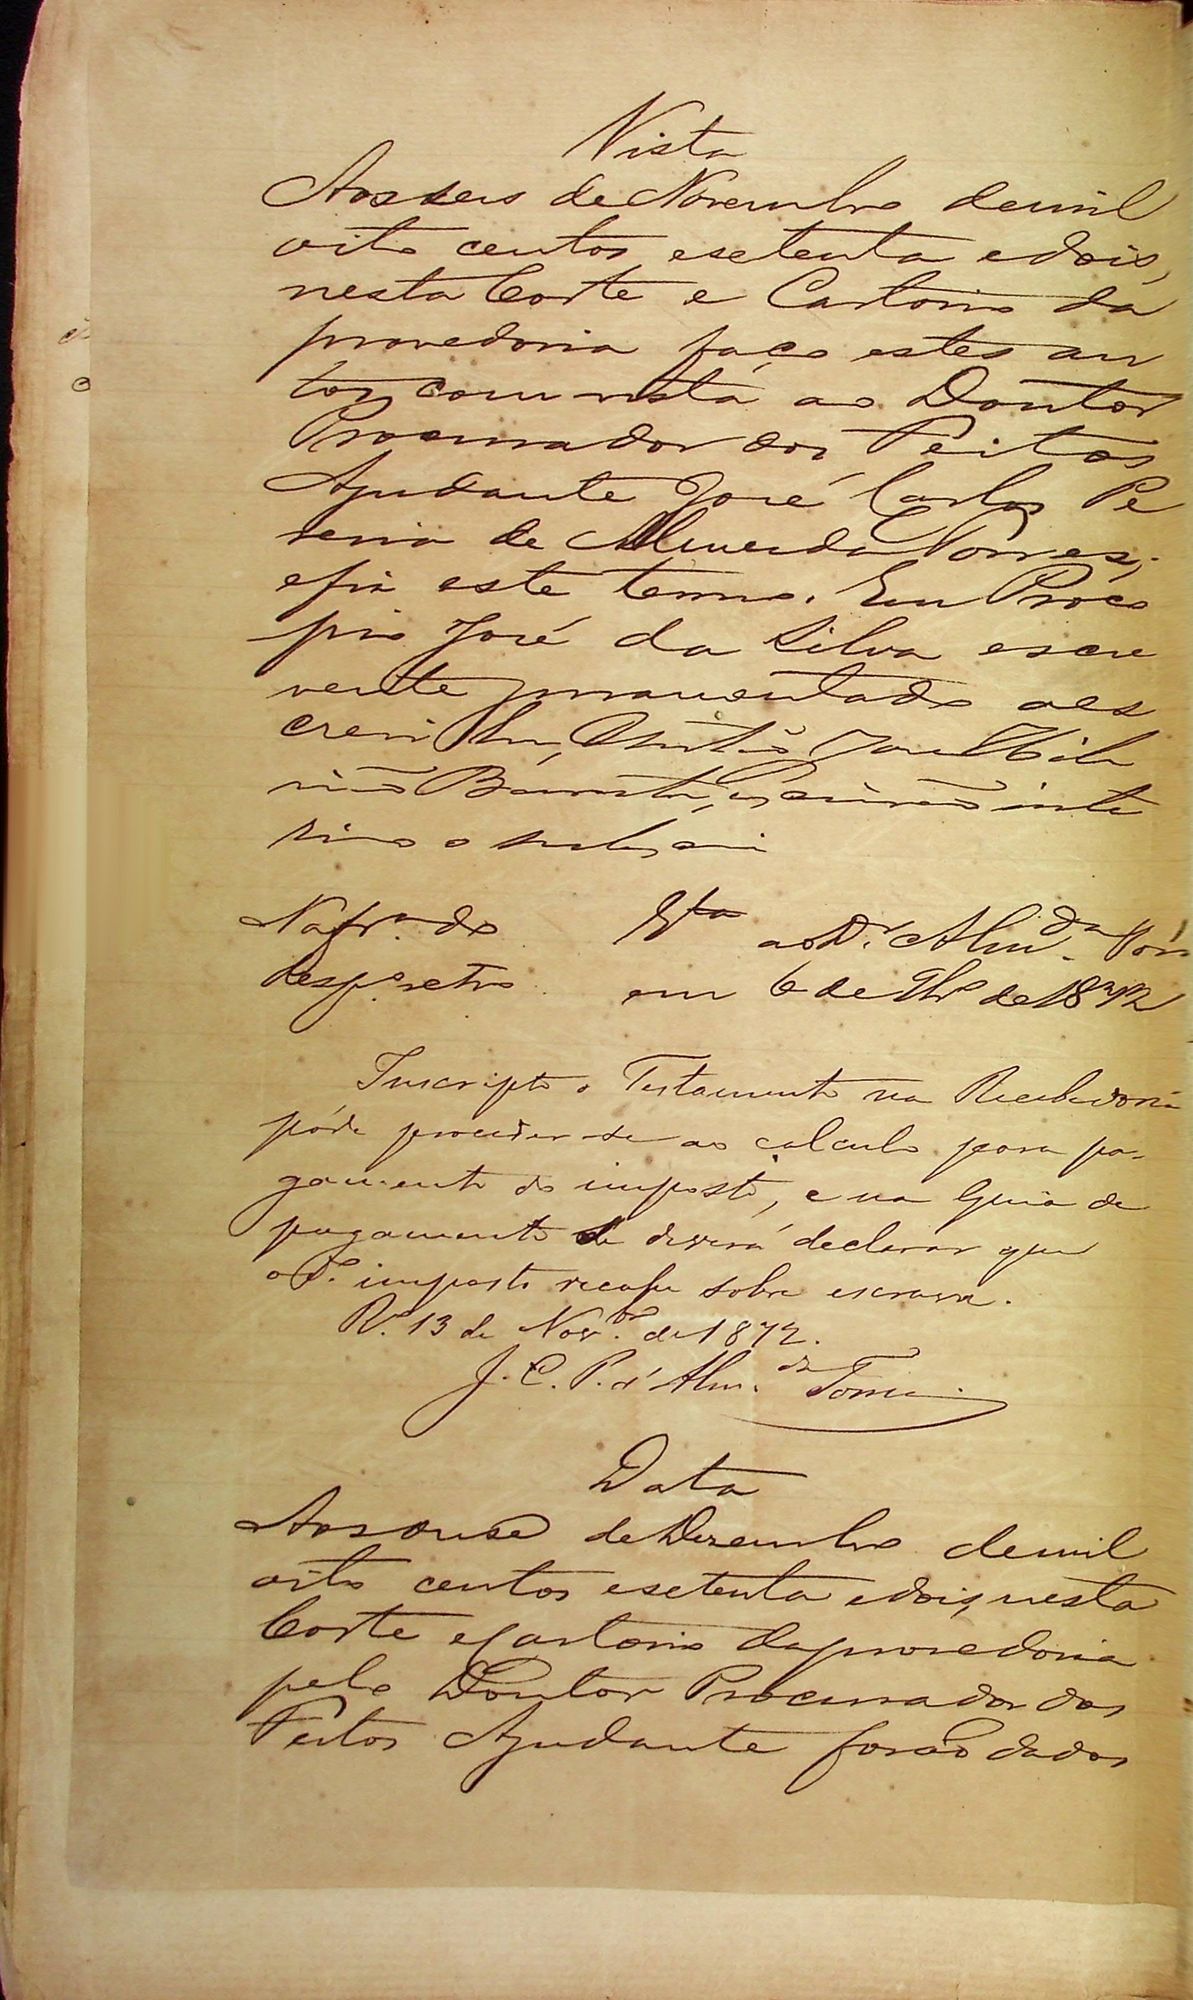 Vista
Aos seis de Novembro de mil
oito centos e setenta e dois,
nesta Corte e Cartorio da
provedoria faço estes au
tos com vista ao Doutor
Procurador dos Feitos
Ajudante José Carlos Pe
reira de Almeida Torres,
e fiz este termo. Eu Proco
pio José da Silva escre
vente juramentado o es
crevi Eu, José
Escrivão inte
rino o subscrevi
Na fr.ª do
desp.º retro
Vta ao Dr. Alm.da Torr
em 6 de 9br.º de 1872
Inscripto o Testamento na Recebedoria
póde proceder-se ao calculo para pa-
gamento do imposto, e na Guia de
pagamento se deverá declarar que
o d.º imposto recahe sobre escrava.
R.º 13 de Nov.bro de 1872.
J. C. P. d'Alm.da Torres
Data
Aos onse de Dezembro de mil
oito centos e setenta e dois, nesta
Corte e Cartorio da provedoria
pelo Doutor Procurador dos
Feitos Ajudante forão dados